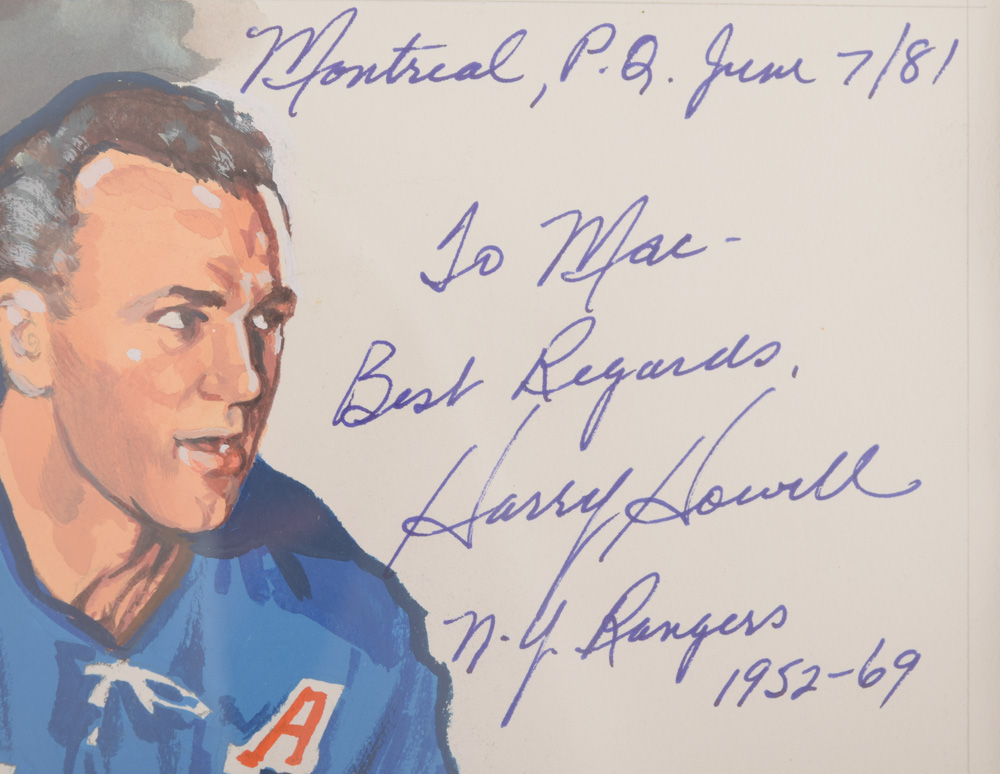 Montreal, P.Q. June 7/81
To Mac-
Best Regards,
Harry Howell
N.Y Rangers
1952-69
A